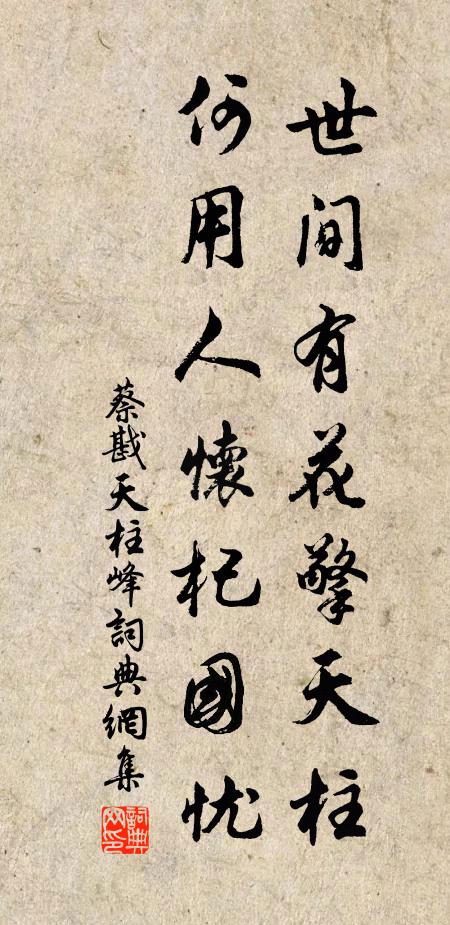 世间有花擎天柱
何用人懷杞國忧
蔡戡天柱峰詞典網集
詞典網印